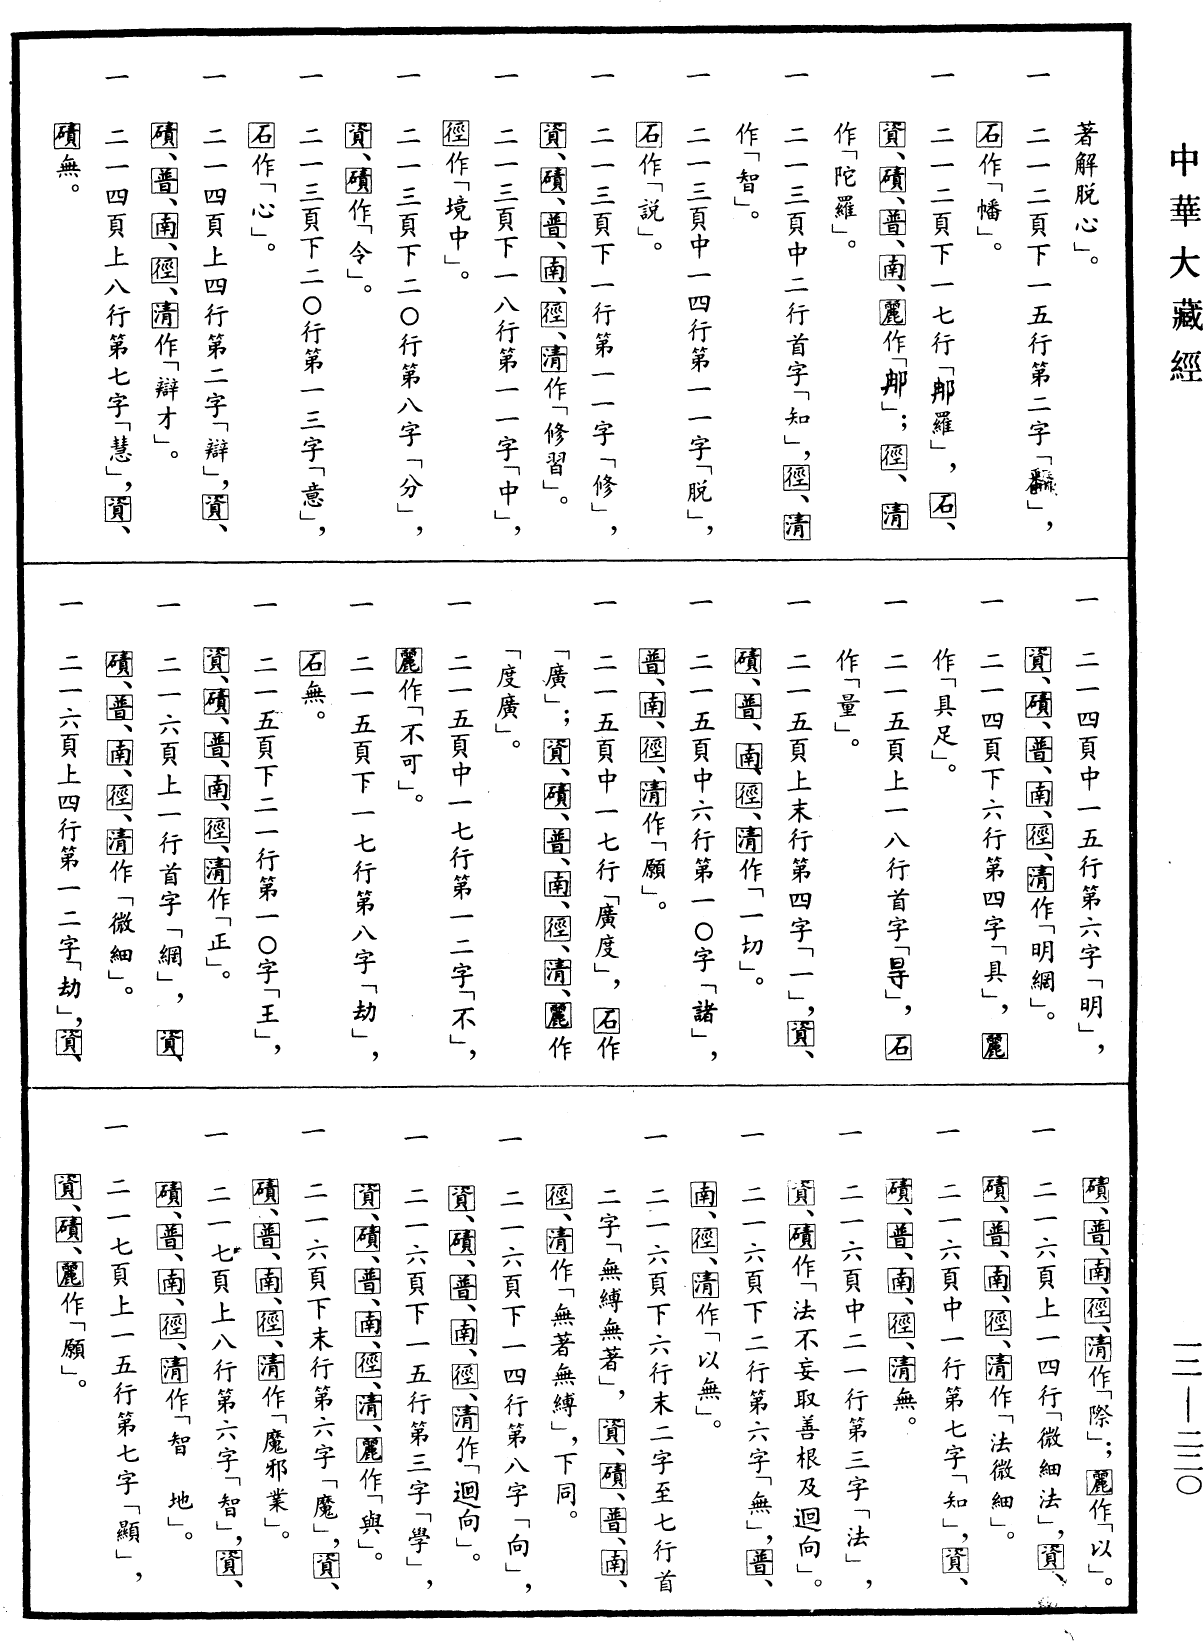 中華大藏經
一二—二二〇
著解脱心」。
一 二一二頁下一五行第二字「翻」，
石作「幡」。
一 二一二頁下一七行「𨚗羅」，石、
資、磧、普、南、麗作「𨚗」；徑、清
作「陀羅」。
一 二一三頁中二行首字「知」，徑、清
作「智」。
一 二一三頁中一四行第一一字「脱」，
石作「説」。
一 二一三頁下一行第一一字「修」，
資、磧、普、南、徑、清作「修習」。
一 二一三頁下一八行第一一字「中」，
徑作「境中」。
一 二一三頁下二〇行第八字「分」，
資、磧作「令」。
一 二一三頁下二〇行第一三字「意」，
石作「心」。
一 二一四頁上四行第二字「辯」，資、
磧、普、南、徑、清作「辯才」。
一 二一四頁上八行第七字「慧」，資、
磧無。
一 二一四頁中一五行第六字「明」，
資、磧、普、南、徑、清作「明網」。
一 二一四頁下六行第四字「具」，麗
作「具足」。
一 二一五頁上一八行首字「㝵」，石
作「量」。
一 二一五頁上末行第四字「一」，資、
磧、普、南、徑、清作「一切」。
一 二一五頁中六行第一〇字「諸」，
普、南、徑、清作「願」。
一 二一五頁中一七行「廣度」，石作
「廣」；資、磧、普、南、徑、清、麗作
「度廣」。
一 二一五頁中一七行第一二字「不」，
麗作「不可」。
一 二一五頁下一七行第八字「劫」，
石無。
一 二一五頁下二一行第一〇字「王」，
資、磧、普、南、徑、清作「正」。
一 二一六頁上一行首字「網」，資、
磧、普、南、徑、清作「微細」。
一 二一六頁上四行第一二字「劫」，資、
磧、普、南、徑、清作「際」；麗作「以」。
一 二一六頁上一四行「微細法」，資、
磧、普、南、徑、清作「法微細」。
一 二一六頁中一行第七字「知」，資、
磧、普、南、徑、清無。
一 二一六頁中二一行第三字「法」，
資、磧作「法不妄取善根及迴向」。
一 二一六頁下二行第六字「無」，普、
南、徑、清作「以無」。
一 二一六頁下六行末二字至七行首
二字「無縛無著」，資、磧、普、南、
徑、清作「無著無縛」，下同。
一 二一六頁下一四行第八字「向」，
資、磧、普、南、徑、清作「迴向」。
一 二一六頁下一五行第三字「學」，
資、磧、普、南、徑、清、麗作「與」。
一 二一六頁下末行第六字「魔」，資、
磧、普、南、徑、清作「魔邪業」。
一 二一七頁上八行第六字「智」，資、
磧、普、南、徑、清作「智 地」。
一 二一七頁上一五行第七字「顯」，
資、磧、麗作「願」。